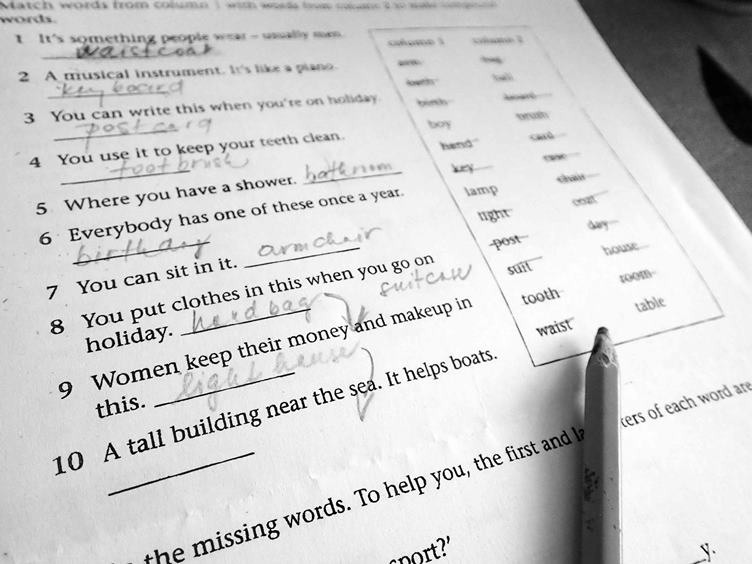 Match words from column 1 with words from column 2 to make compound
words.
1 It's something people wear – usually men.
waistcoat
2 A musical instrument. It's like a piano.
keyboard
3 You can write this when you're on holiday.
postcard
4 You use it to keep your teeth clean.
tootbrush
5 Where you have a shower. bathroom
6 Everybody has one of these once a year.
birthday
7 You can sit in it. armchair
8 You put clothes in this when you go on
holiday. handbag suitcase
9 Women keep their money and makeup in
this. lighthouse
10 A tall building near the sea. It helps boats.
the missing words. To help you, the first and la ters of each word are
port?'
y.
column 1 column 2
arm bag
bath ball
birth board
boy brush
hand card
key case
lamp chair
light coat
post day
suit house
tooth room
waist table